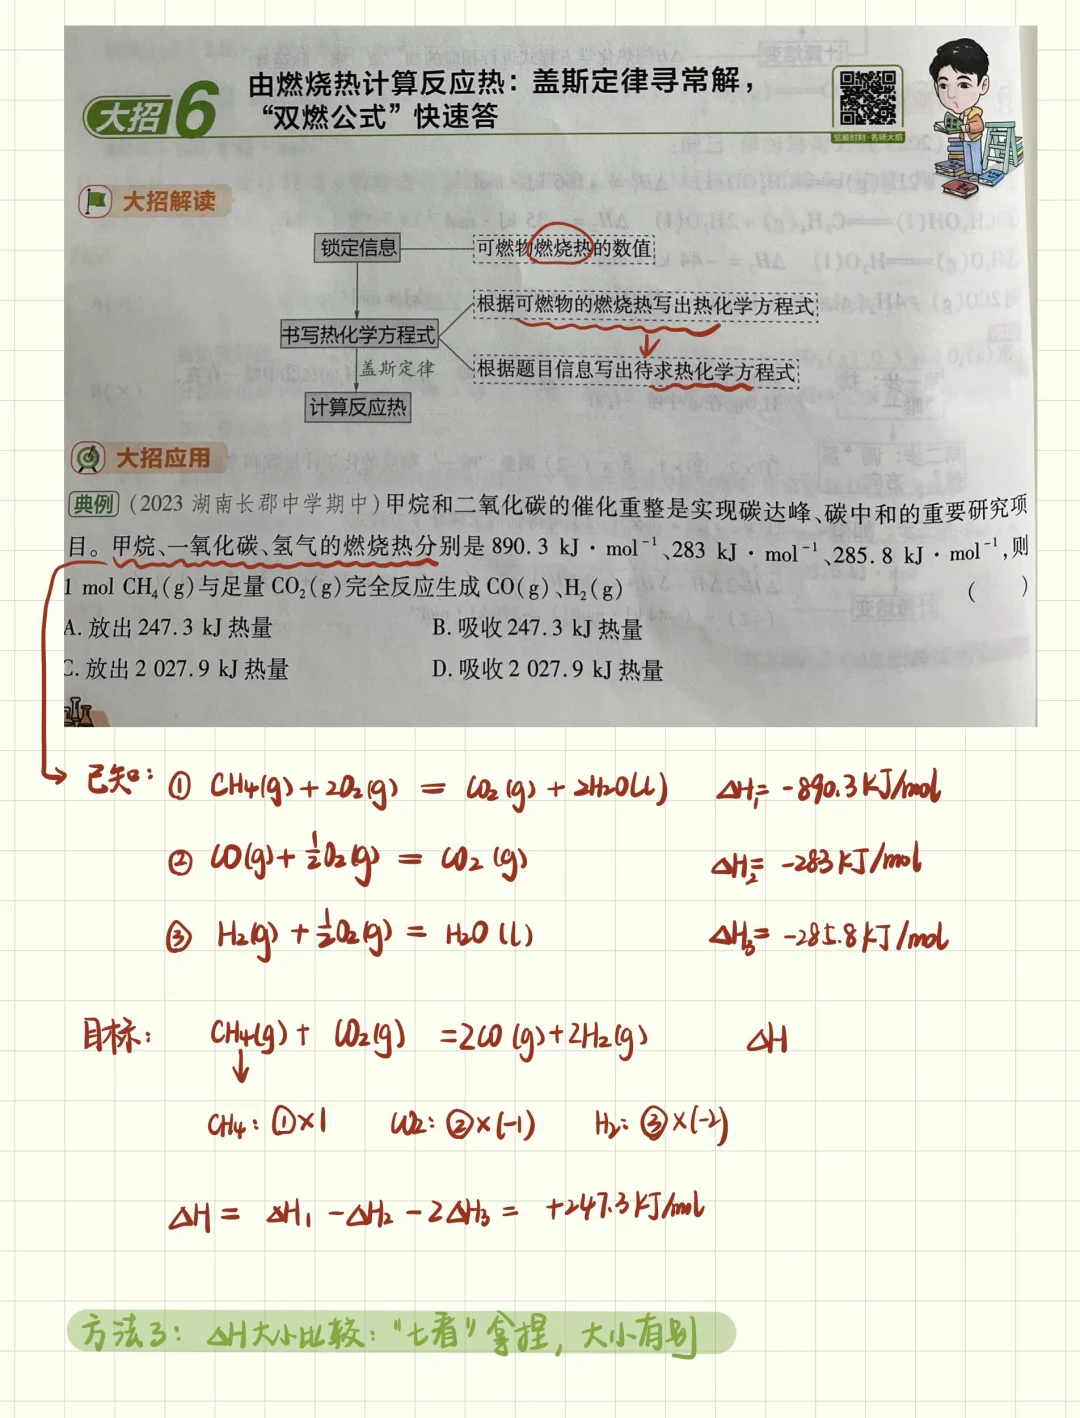 大招6
由燃烧热计算反应热：盖斯定律寻常解，
“双燃公式”快速答
大招解读
锁定信息
可燃物燃烧热的数值
根据可燃物的燃烧热写出热化学方程式
书写热化学方程式
盖斯定律
根据题目信息写出待求热化学方程式
计算反应热
大招应用
典例 (2023 湖南长郡中学期中)甲烷和二氧化碳的催化重整是实现碳达峰、碳中和的重要研究项
目。甲烷、一氧化碳、氢气的燃烧热分别是 890.3 kJ·mol⁻¹、283 kJ·mol⁻¹、285.8 kJ·mol⁻¹,则
1 mol CH₄(g)与足量 CO₂(g)完全反应生成 CO(g)、H₂(g) ( )
A. 放出 247.3 kJ 热量 B. 吸收 247.3 kJ 热量
C. 放出 2 027.9 kJ 热量 D. 吸收 2 027.9 kJ 热量
已知： ① CH4(g)+2O2(g) = CO2(g)+2H2O(l) ΔH₁= -890.3KJ/mol
② CO(g)+½O2(g) = CO2(g) ΔH₂= -283KJ/mol
③ H2(g)+½O2(g) = H2O(l) ΔH₃= -285.8KJ/mol
目标： CH4(g)+ CO2(g) =2CO(g)+2H2(g) ΔH
CH4: ①×1 CO2: ②×(-1) H2: ③×(-2)
ΔH = ΔH₁ -ΔH₂ -2ΔH₃ = +247.3KJ/mol
方法3：ΔH大小比较：“七看”拿捏，大小有别